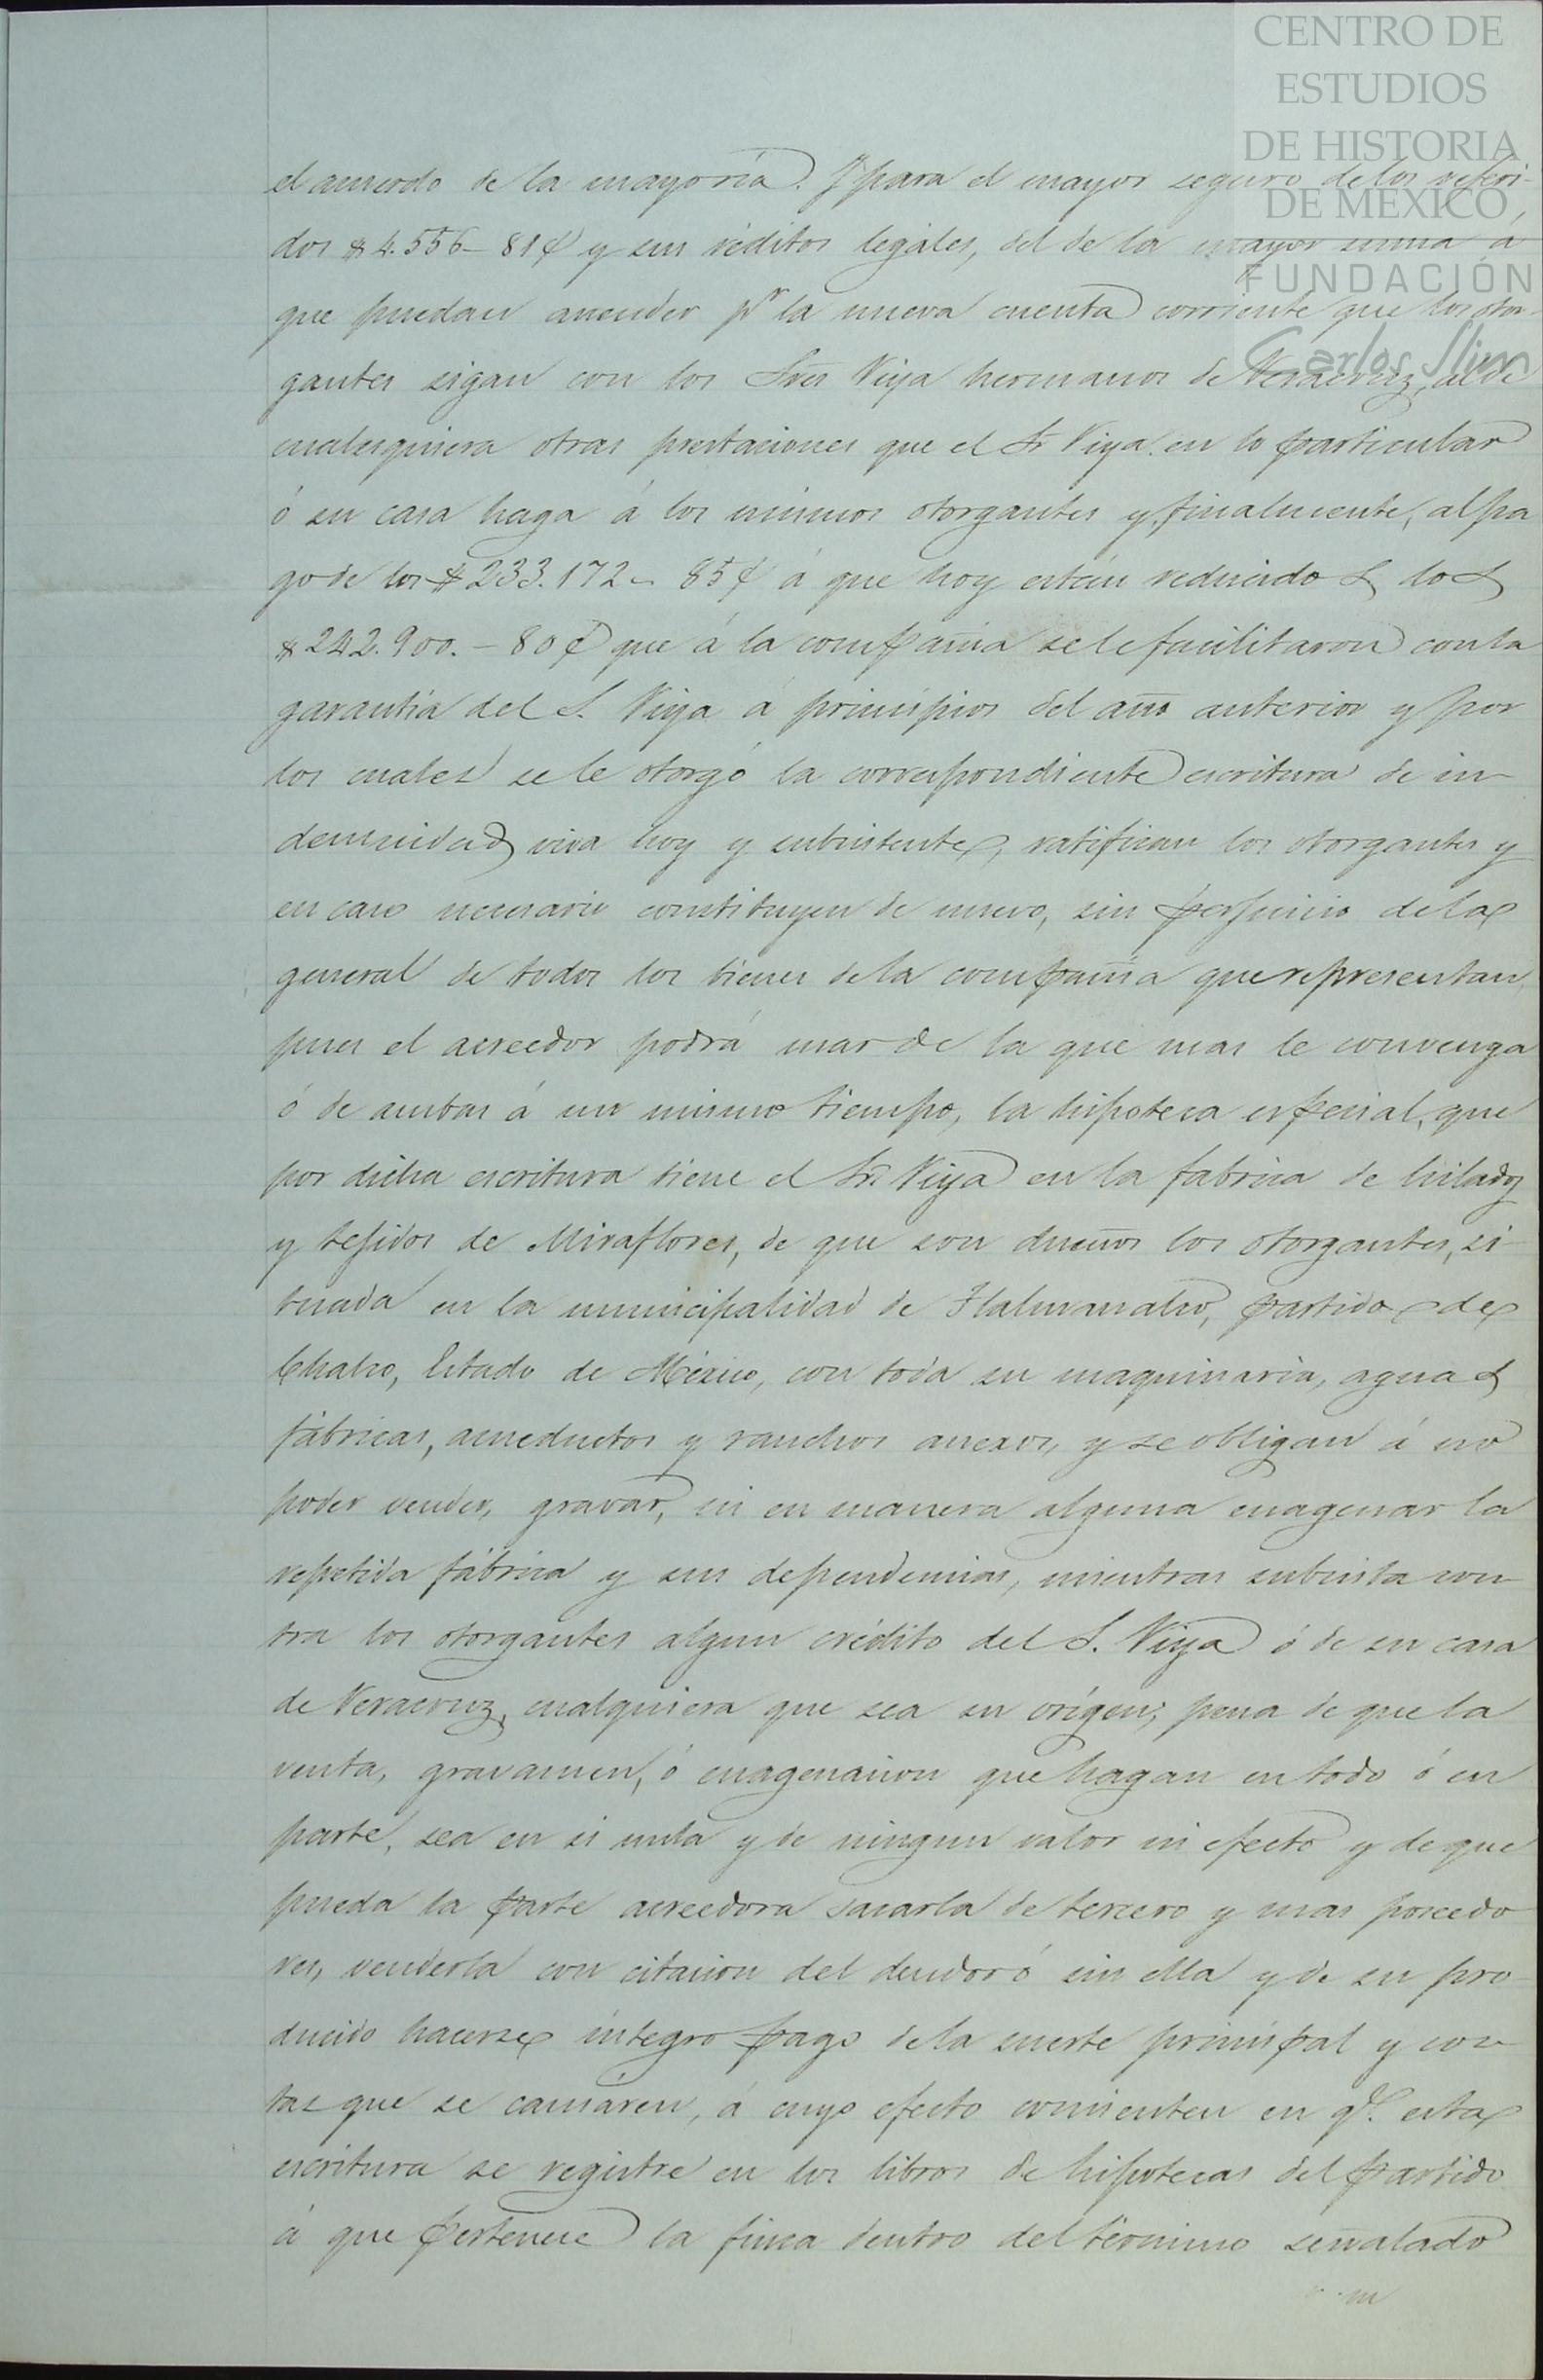 CENTRO DE
ESTUDIOS
DE HISTORIA
DE MÉXICO
FUNDACIÓN
Carlos Slim
el acuerdo de la mayoría. Y para el mayor seguro de los referi-
dos $4.556–81¢ y sus réditos legales, del de la mayor suma á
que puedan ascender pr la nueva cuenta corriente que los otor-
gantes sigan con los Sres Viya hermanos de Veracruz, al de
cualesquiera otras prestaciones que el Sr Viya en lo particular
ó su casa haga á los mismos otorgantes y finalmente, al pa
go de los $233.172– 85¢ á que hoy están reducidos los
$242.900.–80¢ que á la compañia se le facilitaron con la
garantía del S. Viya á principios del año anterior y por
los cuales se le otorgó la correspondiente escritura de in-
demnidad, viva hoy y subsistente, ratifican los otorgantes y
en caso necesario constituyen de nuevo, sin perjuicio de la
general de todos los bienes de la compañia que representan,
pues el acreedor podrá usar de la que mas le convenga
ó de ambas á un mismo tiempo, la hipoteca especial, que
por dicha escritura tiene el Sr. Viya en la fabrica de hilados
y tejidos de Miraflores, de que son dueños los otorgantes, si-
tuada en la municipalidad de Tlalmanalco, partido de
Chalco, Estado de México, con toda su maquinaria, aguas
fábricas, acueductos y ranchos anexos, y se obligan á no
poder vender, gravar, ni en manera alguna enagenar la
repetida fábrica y sus dependencias, mientras subsista con-
tra los otorgantes algun crédito del S. Viya ó de su casa
de Veracruz, cualquiera que sea su orígen; pena de que la
venta, gravamen, ó enagenacion que hagan en todo ó en
parte, sea en si nula y de ningun valor ni efecto y de que
pueda la parte acreedora sacarla de tercero y mas poseedo
res, venderla con citacion del deudor ó sin ella y de su pro-
ducido hacerse íntegro pago de la suerte principal y cos-
tas que se causaren, á cuyo efecto consienten en qe. esta
escritura se registre en los libros de hipotecas del partido
á que pertenece la finca dentro del término señalado